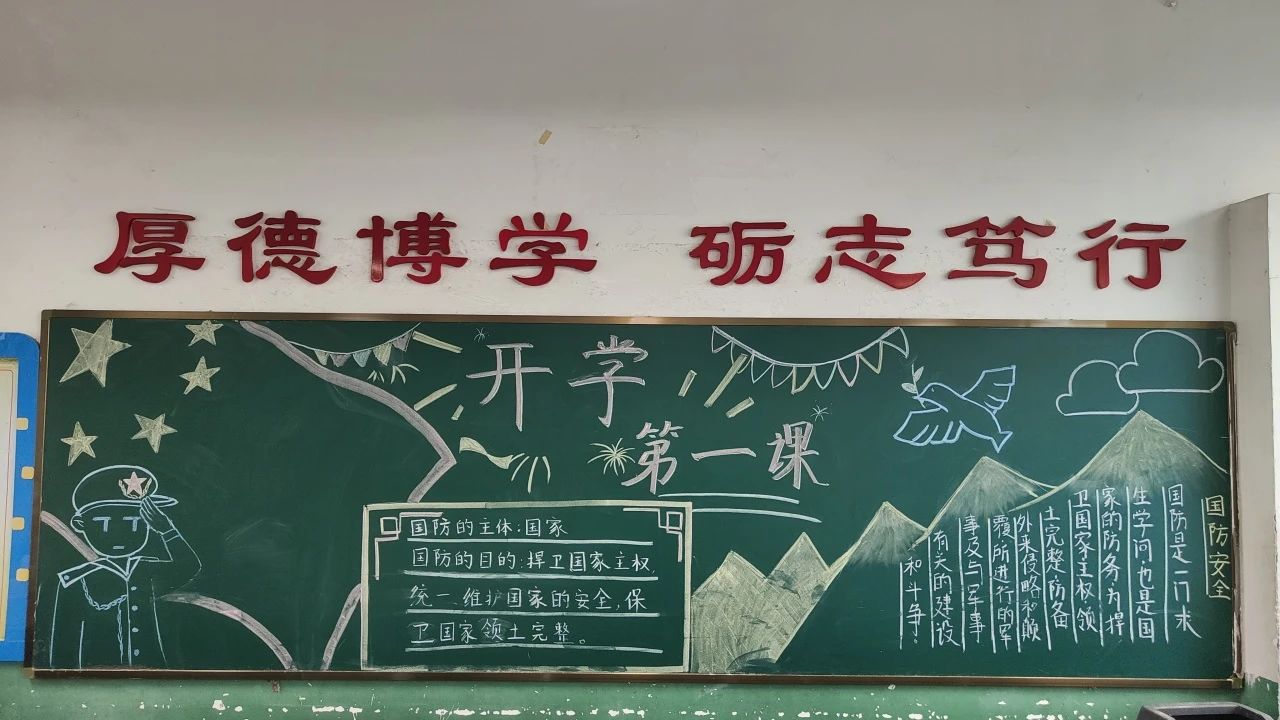 厚德博学 砺志笃行
开学
第一课
国防的主体:国家
国防的目的:捍卫国家主权,
统一、维护国家的安全,保
卫国家领土完整。
国防安全
国防是一门求
生学问,也是国
家的防务,为捍
卫国家主权、领
土完整,防备
外来侵略和颠
覆,所进行的军
事及与军事
有关的建设
和斗争。